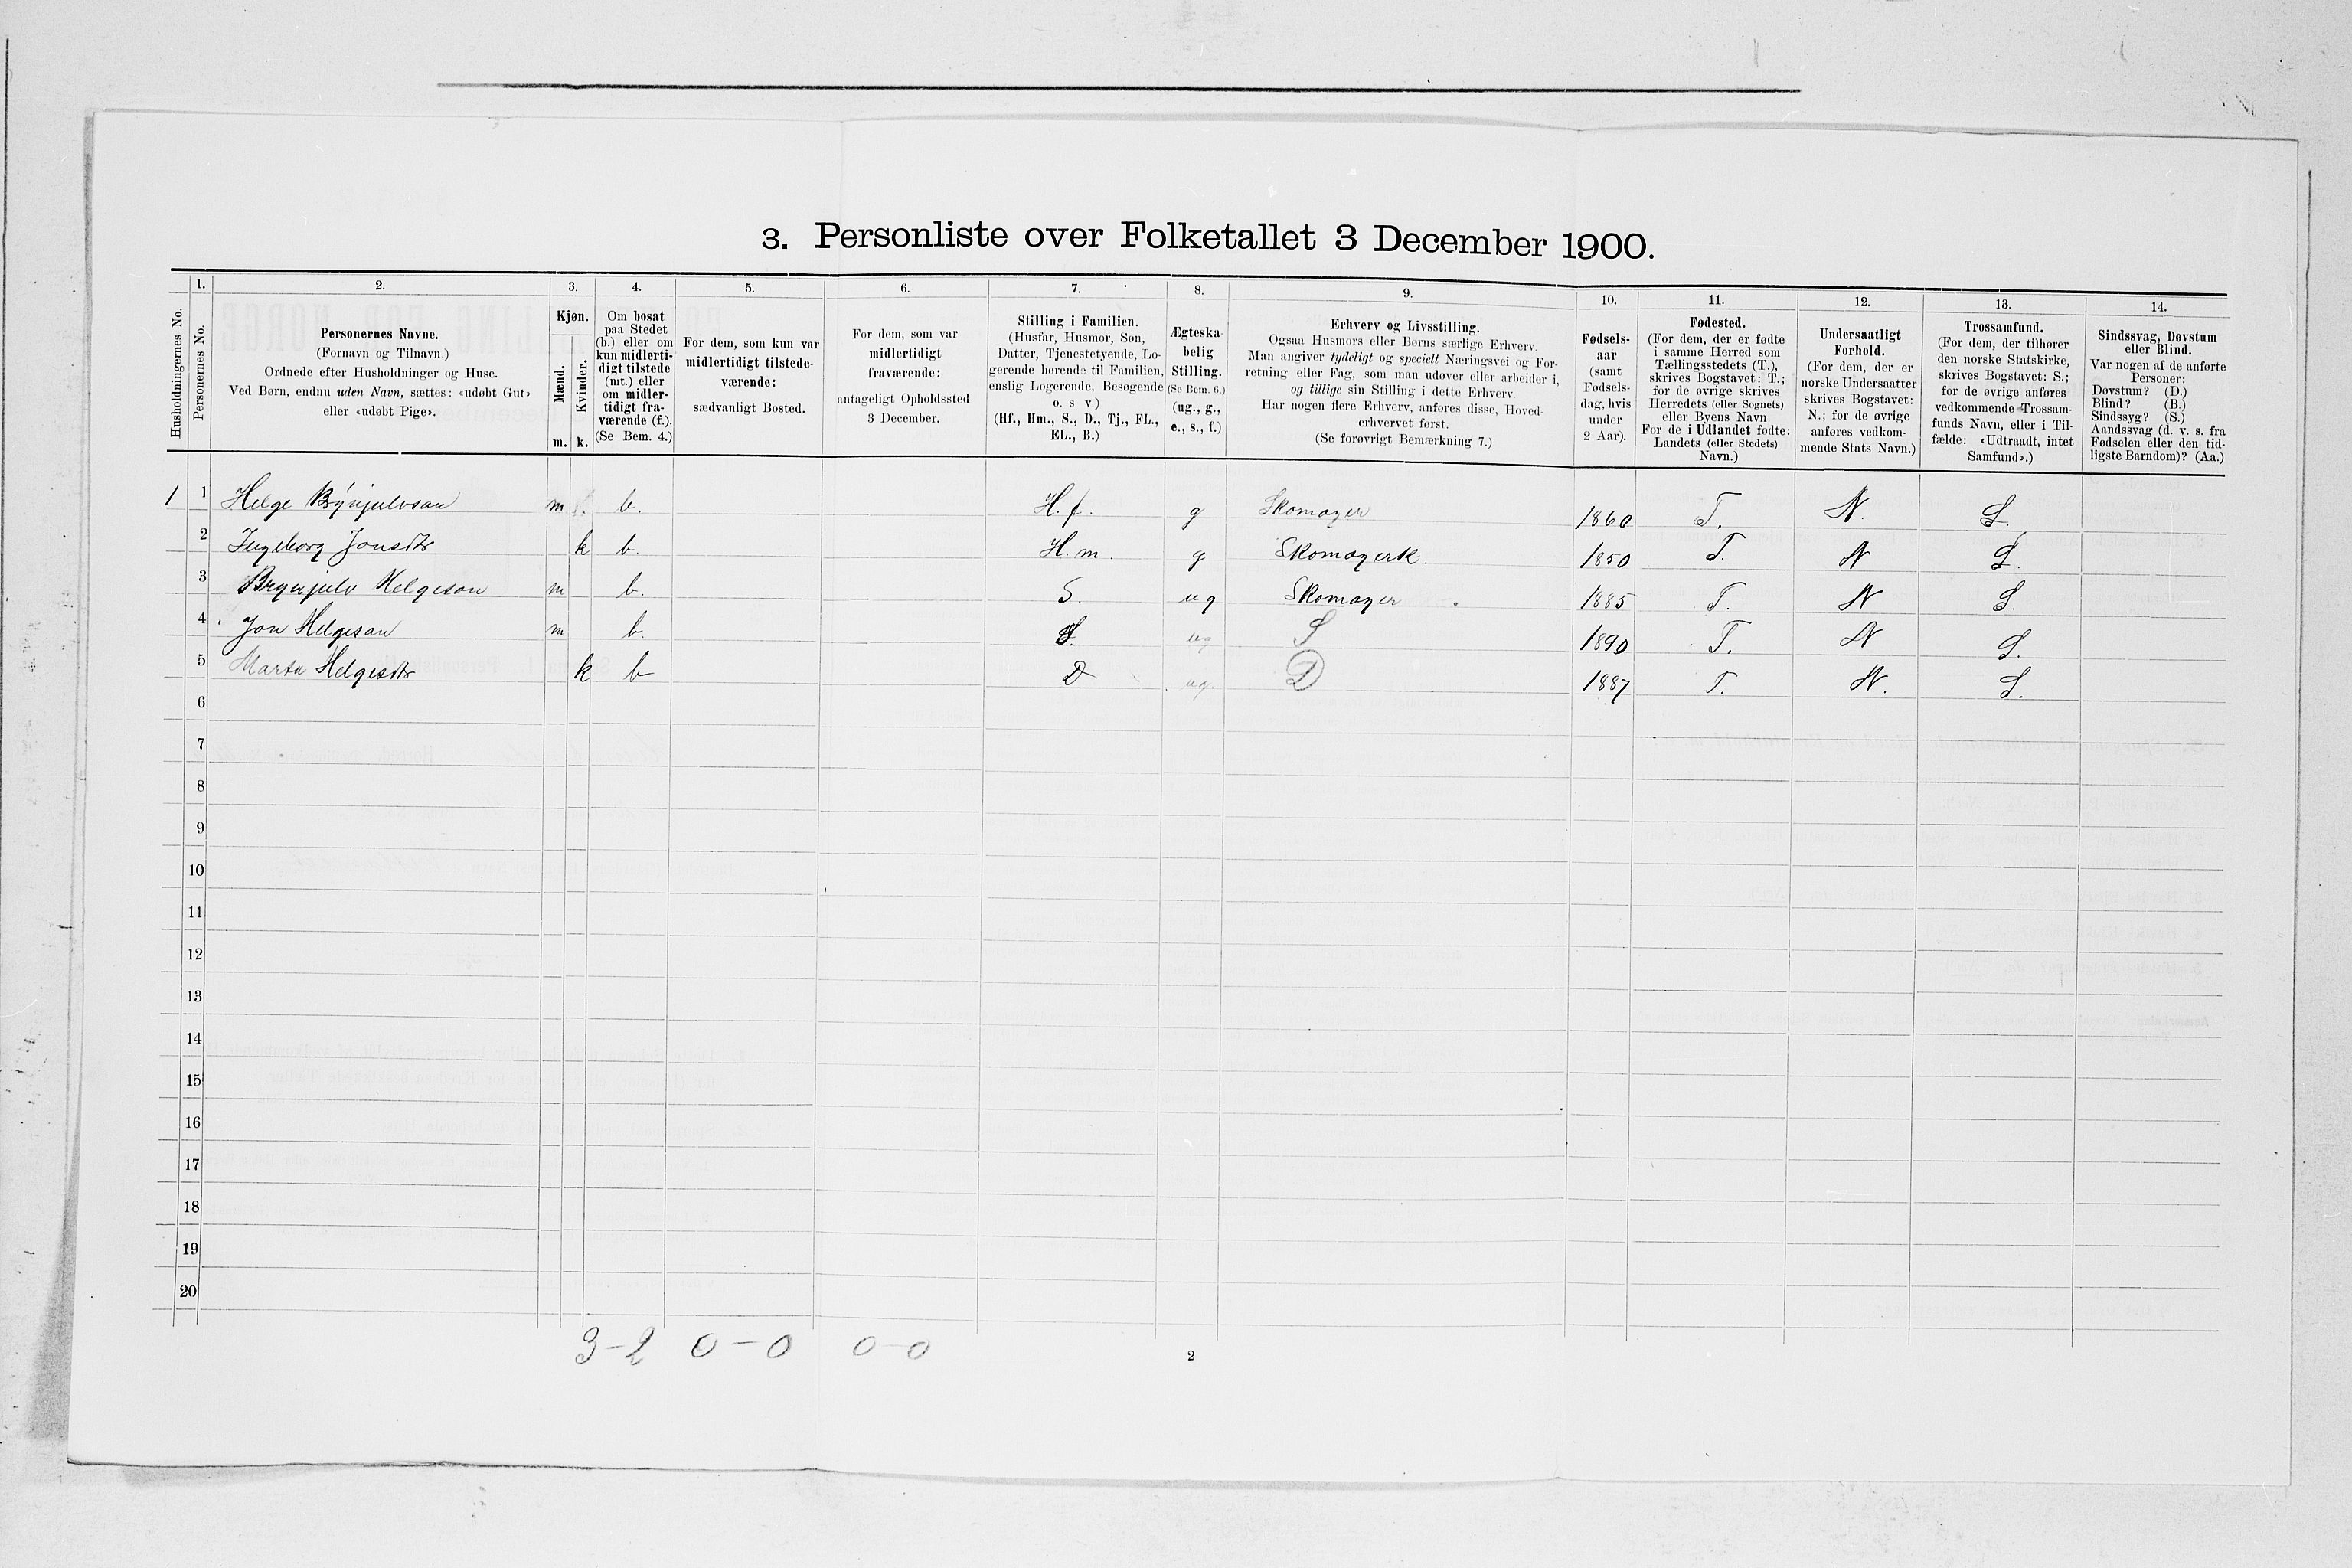 3. Personliste over Folketallet 3 December 1900.
1. 2. 3. 4. 5. 6. 7. 8. 9. 10. 11. 12. 13. 14.
Husholdningernes No.
Personernes No.
Personernes Navne.
(Fornavn og Tilnavn)
Ordnede efter Husholdninger og Huse.
Ved Børn, endnu uden Navn, sættes: «udøbt Gut»
eller «udøbt Pige».
Kjøn.
Mænd.
Kvinder.
m. k.
Om bosat
paa Stedet
(b.) eller om
kun midlerti-
digt tilstede
(mt.) eller
om midler-
tidigt fra-
værende (f.).
(Se Bem. 4.)
For dem, som kun var
midlertidigt tilstede-
værende:
sædvanligt Bosted.
For dem, som var
midlertidigt
fraværende:
antageligt Opholdssted
3 December.
Stilling i Familien.
(Husfar, Husmor, Søn,
Datter, Tjenestetyende, Lo-
gerende hørende til Familien,
enslig Logerende, Besøgende
o. s v.)
(Hf., Hm., S., D., Tj., FL.,
EL., B.)
Ægteska-
belig
Stilling.
(Se Bem. 6.)
(ug., g.,
e., s., f.)
Erhverv og Livsstilling.
Ogsaa Husmors eller Børns særlige Erhverv.
Man angiver tydeligt og specielt Næringsvei og For-
retning eller Fag, som man udøver eller arbeider i,
og tillige sin Stilling i dette Erhverv.
Har nogen flere Erhverv, anføres disse, Hoved-
erhvervet først.
(Se forøvrigt Bemærkning 7.)
Fødsels-
aar
(samt
Fødsels-
dag, hvis
under
2 Aar).
Fødested.
(For dem, der er fødte
i samme Herred som
Tællingsstedets (T.),
skrives Bogstavet: T.;
for de øvrige skrives
Herredets (eller Sognets)
eller Byens Navn
For de i Udlandet fødte:
Landets (eller Stedets)
Navn.)
Undersaatligt
Forhold.
(For dem, der er
norske Undersaatter
skrives Bogstavet:
N.; for de øvrige
anføres vedkom-
mende Stats Navn.)
Trossamfund.
(For dem, der tilhører
den norske Statskirke,
skrives Bogstavet: S.;
for de øvrige anføres
vedkommende Trossam-
funds Navn, eller i Til-
fælde: «Udtraadt, intet
Samfund».)
Sindssvag, Døvstum
eller Blind.
Var nogen af de anførte
Personer:
Døvstum? (D.)
Blind? (B.)
Sindssyg? (S.)
Aandssvag (d. v. s. fra
Fødselen eller den tid-
ligste Barndom)? (Aa.)
1 1 Helge Brýnjulvsan m b. H. f. g Skomager 1860 T. N. S.
2 Ingeborg Jonsdtr k b. H. m. g Skomagerk. 1850 T. N S.
3 Brynjulv Helgeson m b. — S. ug Skomager 1885 T. N S.
4 Jon Helgesan m b. S. ug S 1890 T. N S.
5 Marta Helgesdtr k b D ug. D 1887 T. N. S.
6
7
8
9
10
11
12
13
14
15
16
17
18
19
20
3-2 0-0 0-0
2